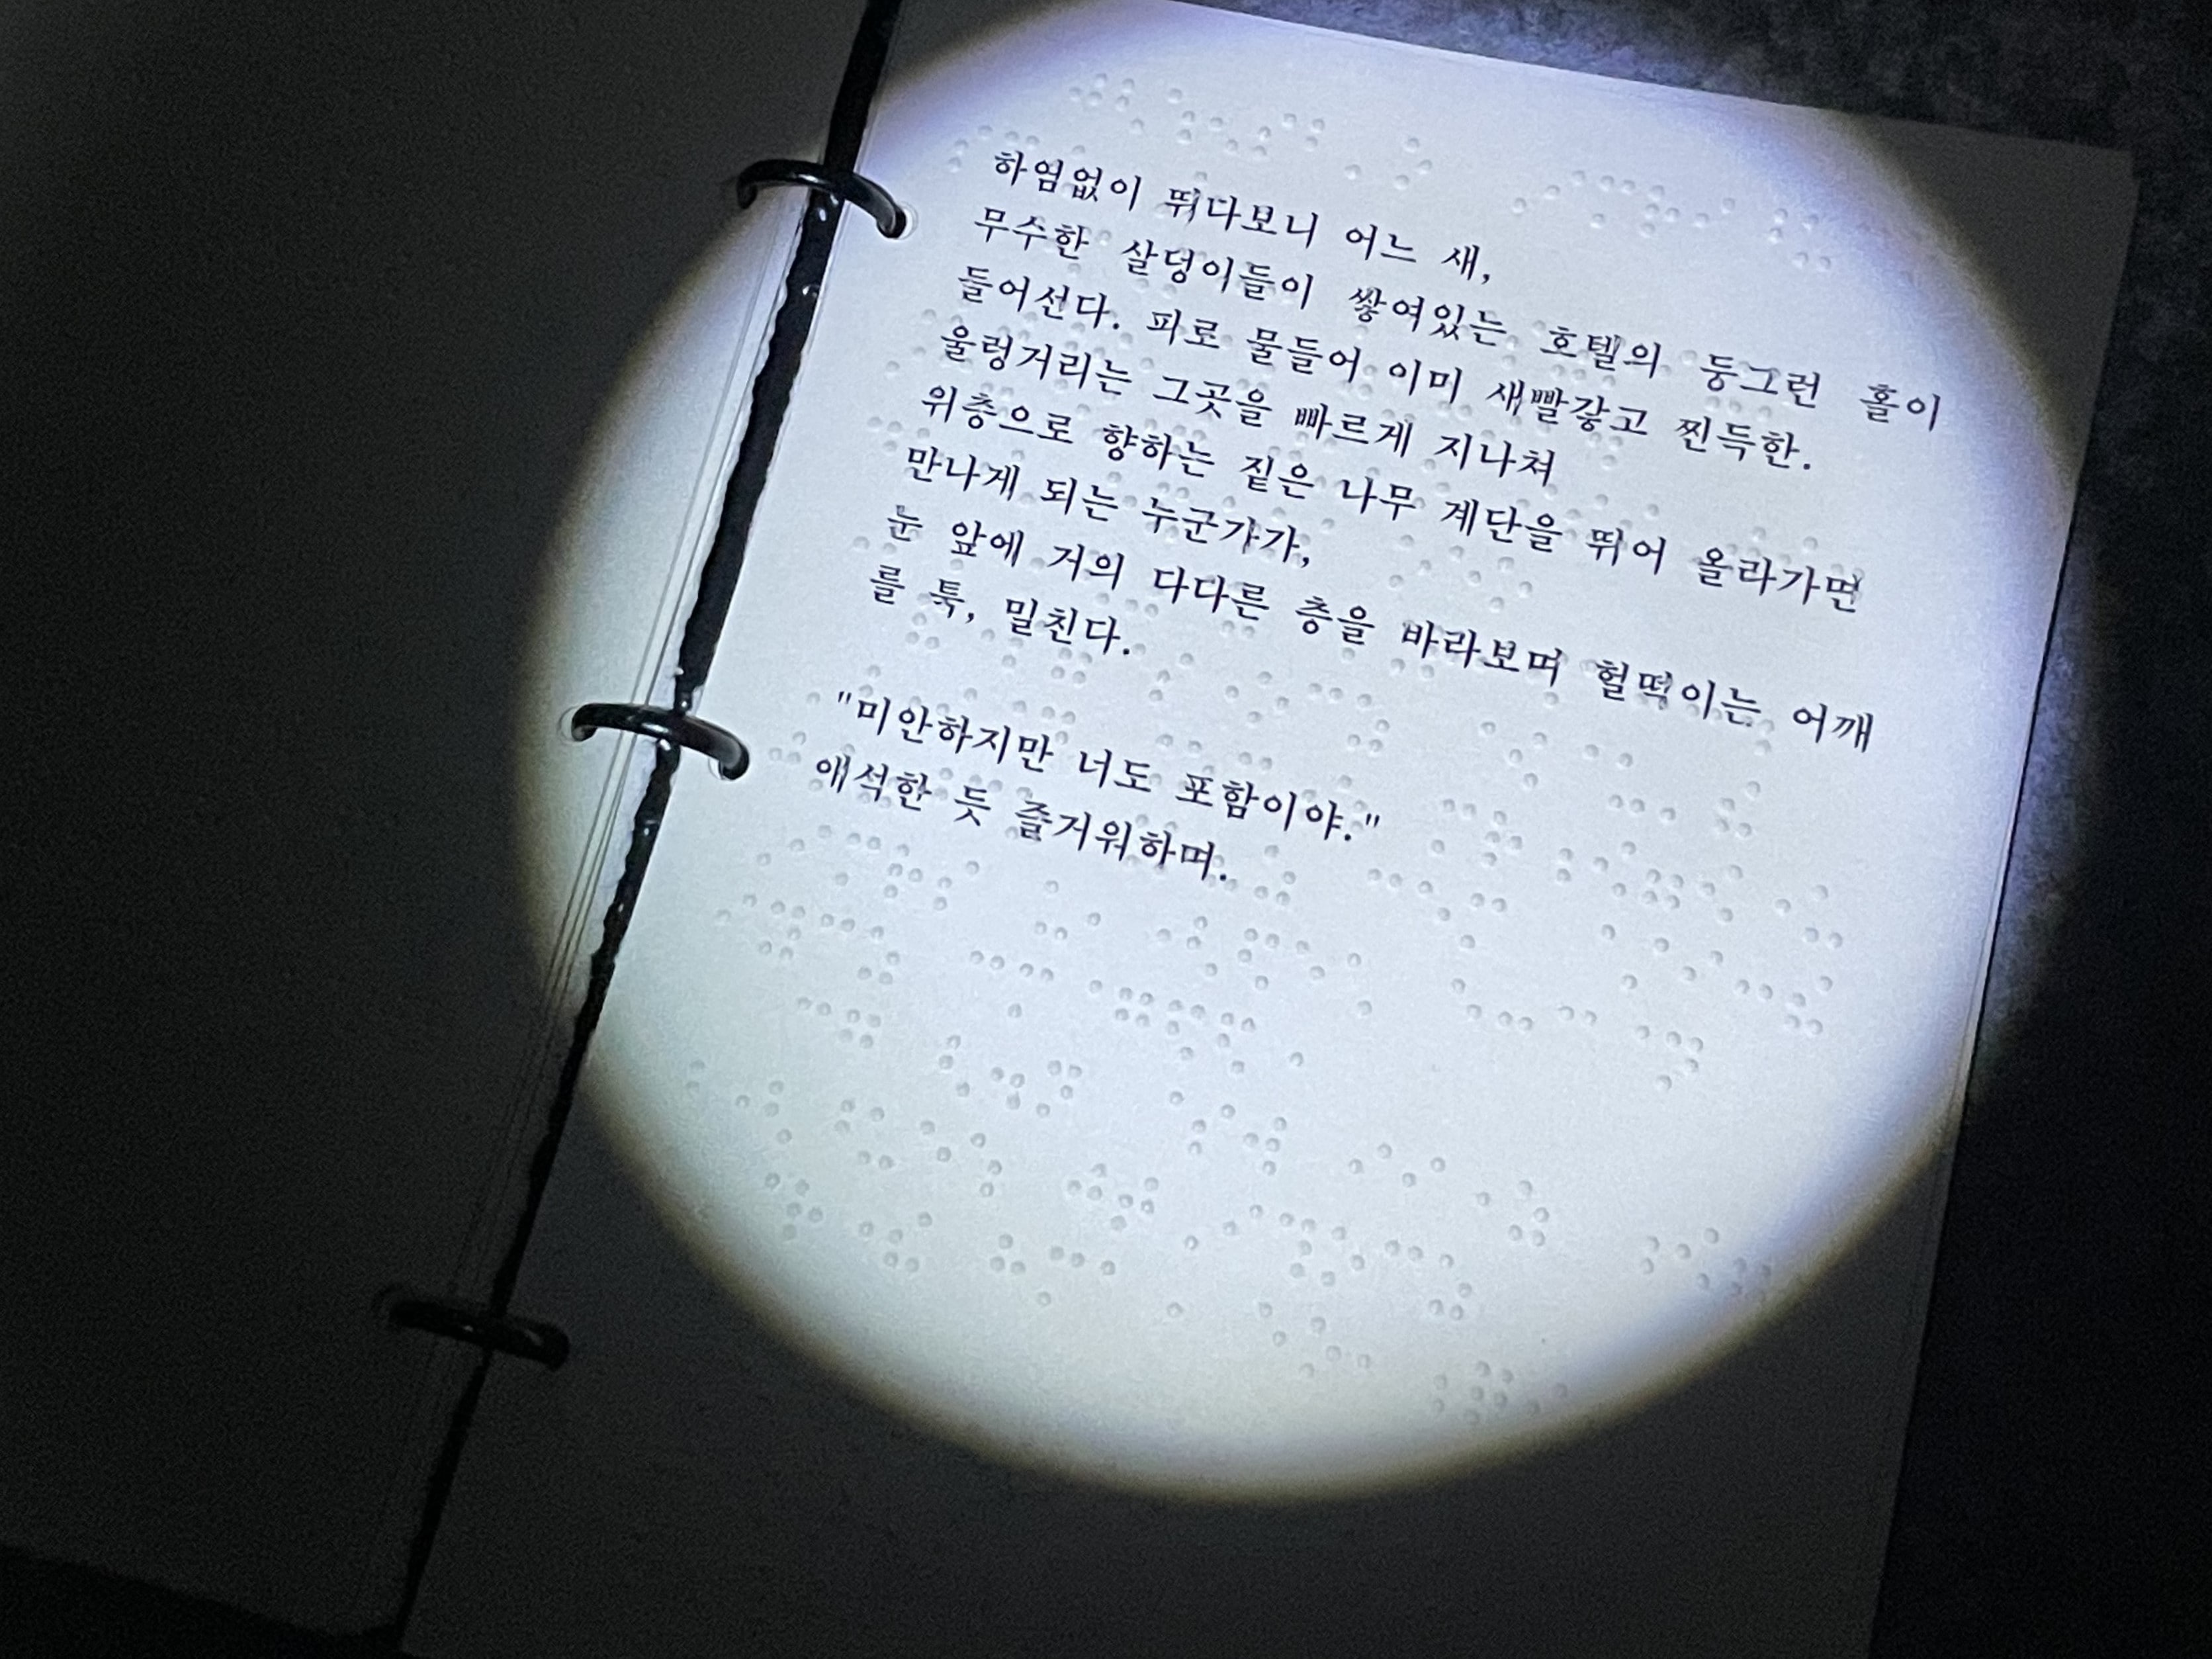 하염없이 뛰다보니 어느 새,
무수한 살덩이들이 쌓여있는 호텔의 둥그런 홀이
들어선다. 피로 물들어 이미 새빨갛고 찐득한.
울렁거리는 그곳을 빠르게 지나쳐
위층으로 향하는 짙은 나무 계단을 뛰어 올라가면
만나게 되는 누군가가,
눈 앞에 거의 다다른 층을 바라보며 헐떡이는 어깨
를 툭, 밀친다.
"미안하지만 너도 포함이야."
애석한 듯 즐거워하며.